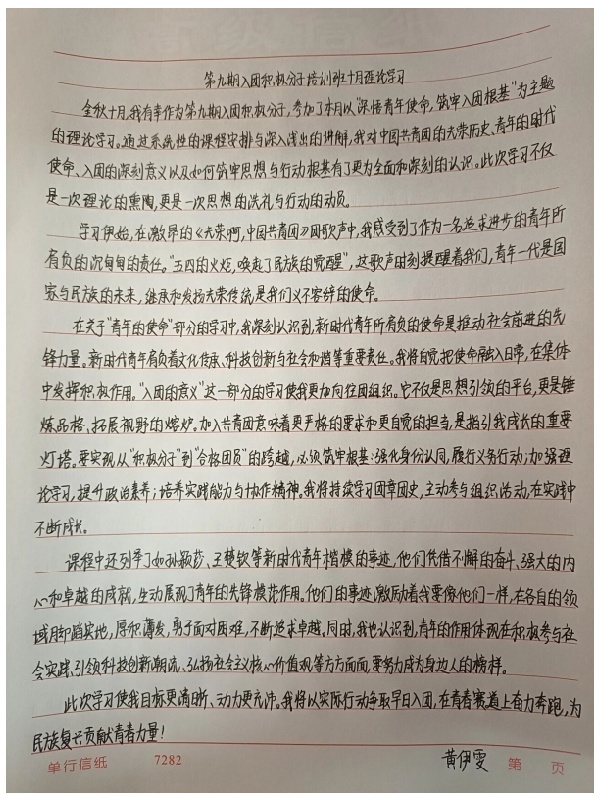 第九期入团积极分子培训班十月理论学习
金秋十月,我有幸作为第九期入团积极分子,参加了本月以“深悟青年使命,筑牢入团根基”为主题
的理论学习。通过系统性的课程安排与深入浅出的讲解,我对中国共青团的光荣历史、青年的时代
使命、入团的深刻意义以及如何筑牢思想与行动根基有了更为全面和深刻的认识。此次学习不仅
是一次理论的熏陶,更是一次思想的洗礼与行动的动员。
学习伊始,在激昂的《光荣啊,中国共青团》团歌声中,我感受到了作为一名追求进步的青年所
肩负的沉甸甸的责任。“五四的火炬,唤起了民族的觉醒”,这歌声时刻提醒着我们,青年一代是国
家与民族的未来,继承和发扬光荣传统是我们义不容辞的使命。
在关于“青年的使命”部分的学习中,我深刻认识到,新时代青年所肩负的使命是推动社会前进的先
锋力量。新时代青年肩负着文化传承、科技创新与社会和谐等重要责任。我将自觉把使命融入日常,在集体
中发挥积极作用。“入团的意义”这一部分的学习使我更加向往团组织。它不仅是思想引领的平台,更是锤
炼品格、拓展视野的熔炉。加入共青团意味着更严格的要求和更自觉的担当,是指引我成长的重要
灯塔。要实现从“积极分子”到“合格团员”的跨越,必须筑牢根基:强化身份认同,履行义务行动;加强理
论学习,提升政治素养;培养实践能力与协作精神。我将持续学习团章团史,主动参与组织活动,在实践中
不断成长。
课程中还列举了如孙颖莎、王楚钦等新时代青年楷模的事迹,他们凭借不懈的奋斗、强大的内
心和卓越的成就,生动展现了青年的先锋模范作用。他们的事迹激励着我要像他们一样,在各自的领
域脚踏实地,厚积薄发,勇于面对困难,不断追求卓越。同时,我也认识到,青年的作用体现在积极参与社
会实践、引领科技创新潮流、弘扬社会主义核心价值观等方方面面,要努力成为身边人的榜样。
此次学习使我目标更清晰、动力更充沛。我将以实际行动争取早日入团,在青春赛道上奋力奔跑,为
民族复兴贡献青春力量!
黄伊雯
单行信纸 7282 第 页